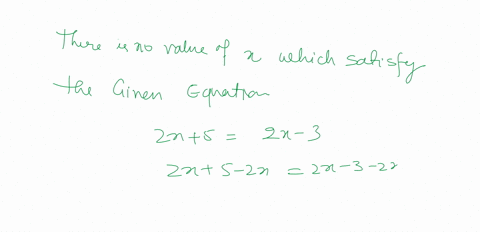 There is no value of x which satisfy
the Given Equation
2x+5 = 2x-3
2x+5-2x = 2x-3-2x